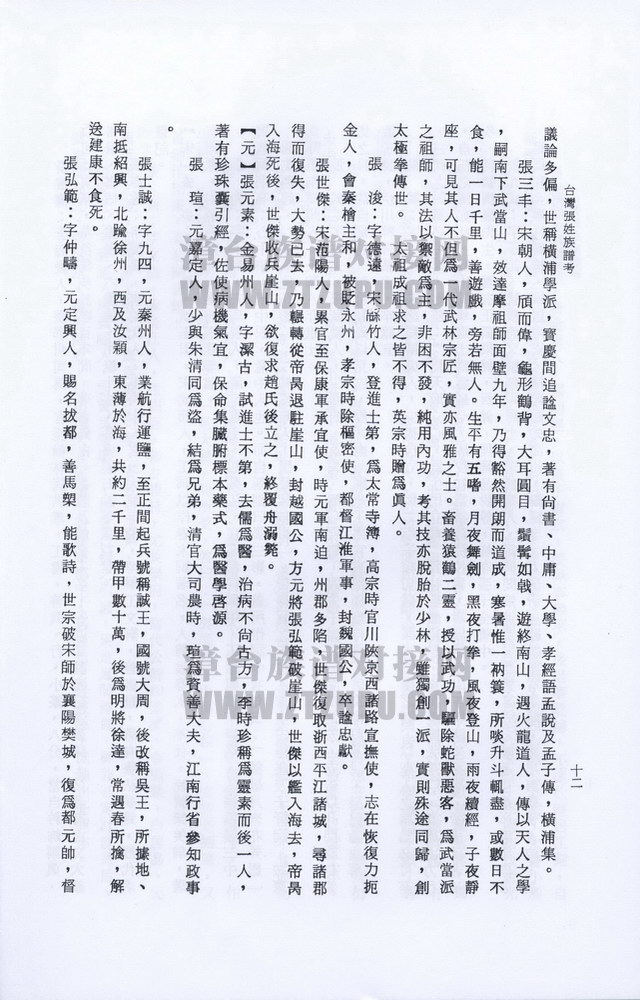 台灣張姓族譜考
十二
議論多偏，世稱橫浦學派，寶慶間追諡文忠，著有尙書、中庸、大學、孝經語孟說及孟子傳，橫浦集。
張三丰：宋朝人，頎而偉，龜形鶴背，大耳圓目，鬚髯如戟，遊終南山，遇火龍道人，傳以天人之學
，嗣南下武當山，效達摩祖師面壁九年，乃得豁然開朗而道成，寒暑惟一衲簑，所啖升斗輒盡，或數日不
食，能一日千里，善遊戲，旁若無人。生平有五嗜，月夜舞劍，黑夜打拳，風夜登山，雨夜續經，子夜靜
座，可見其人不但爲一代武林宗匠，實亦風雅之士。畜養猿鶴二靈，授以武功，驅除蛇獸惡客，爲武當派
之祖師，其法以禦敵爲主，非困不發，純用內功，考其技亦脫胎於少林，雖獨創一派，實則殊途同歸，創
太極拳傳世。　太祖成祖求之皆不得，英宗時贈爲眞人。
張　浚：字德遠，宋縣竹人，登進士第，爲太常寺簿，高宗時官川陝京西諸路宣撫使，志在恢復力扼
金人，會秦檜主和，被貶永州，孝宗時除樞密使，都督江淮軍事，封魏國公，卒諡忠獻。
張世傑：宋范陽人，累官至保康軍承宜使，時元軍南迫，州郡多陷；世傑復取浙西平江諸城，尋諸郡
得而復失，大勢已去，乃輾轉從帝昺退駐崖山，封越國公，方元將張弘範破崖山，世傑以艦入海去，帝昺
入海死後，世傑收兵崖山，欲復求趙氏後立之，終覆舟溺斃。
【元】張元素：金易州人，字潔古，試進士不第，去儒爲醫，治病不尙古方，李時珍稱爲靈素而後一人，
著有珍珠囊引經，佐使病機氣宜，保命集臟腑標本藥式，爲醫學啓源。
張　瑄：元嘉定人，少與朱清同爲盜，結爲兄弟，清官大司農時，瑄爲資善大夫，江南行省參知政事
。
張士誠：字九四，元秦州人，業航行運鹽，至正間起兵號稱誠王，國號大周，後改稱吳王，所據地、
南抵紹興，北踰徐州，西及汝潁，東薄於海，共約二千里，帶甲數十萬，後爲明將徐達，常遇春所擒，解
送建康不食死。
張弘範：字仲疇，元定興人，賜名拔都，善馬槊，能歌詩，世宗破宋師於襄陽樊城，復爲都元帥，督
章台族谱对接网
WWW.ZTZUPU.COM
漳台族谱对接网
WWW.ZTZUPU.COM